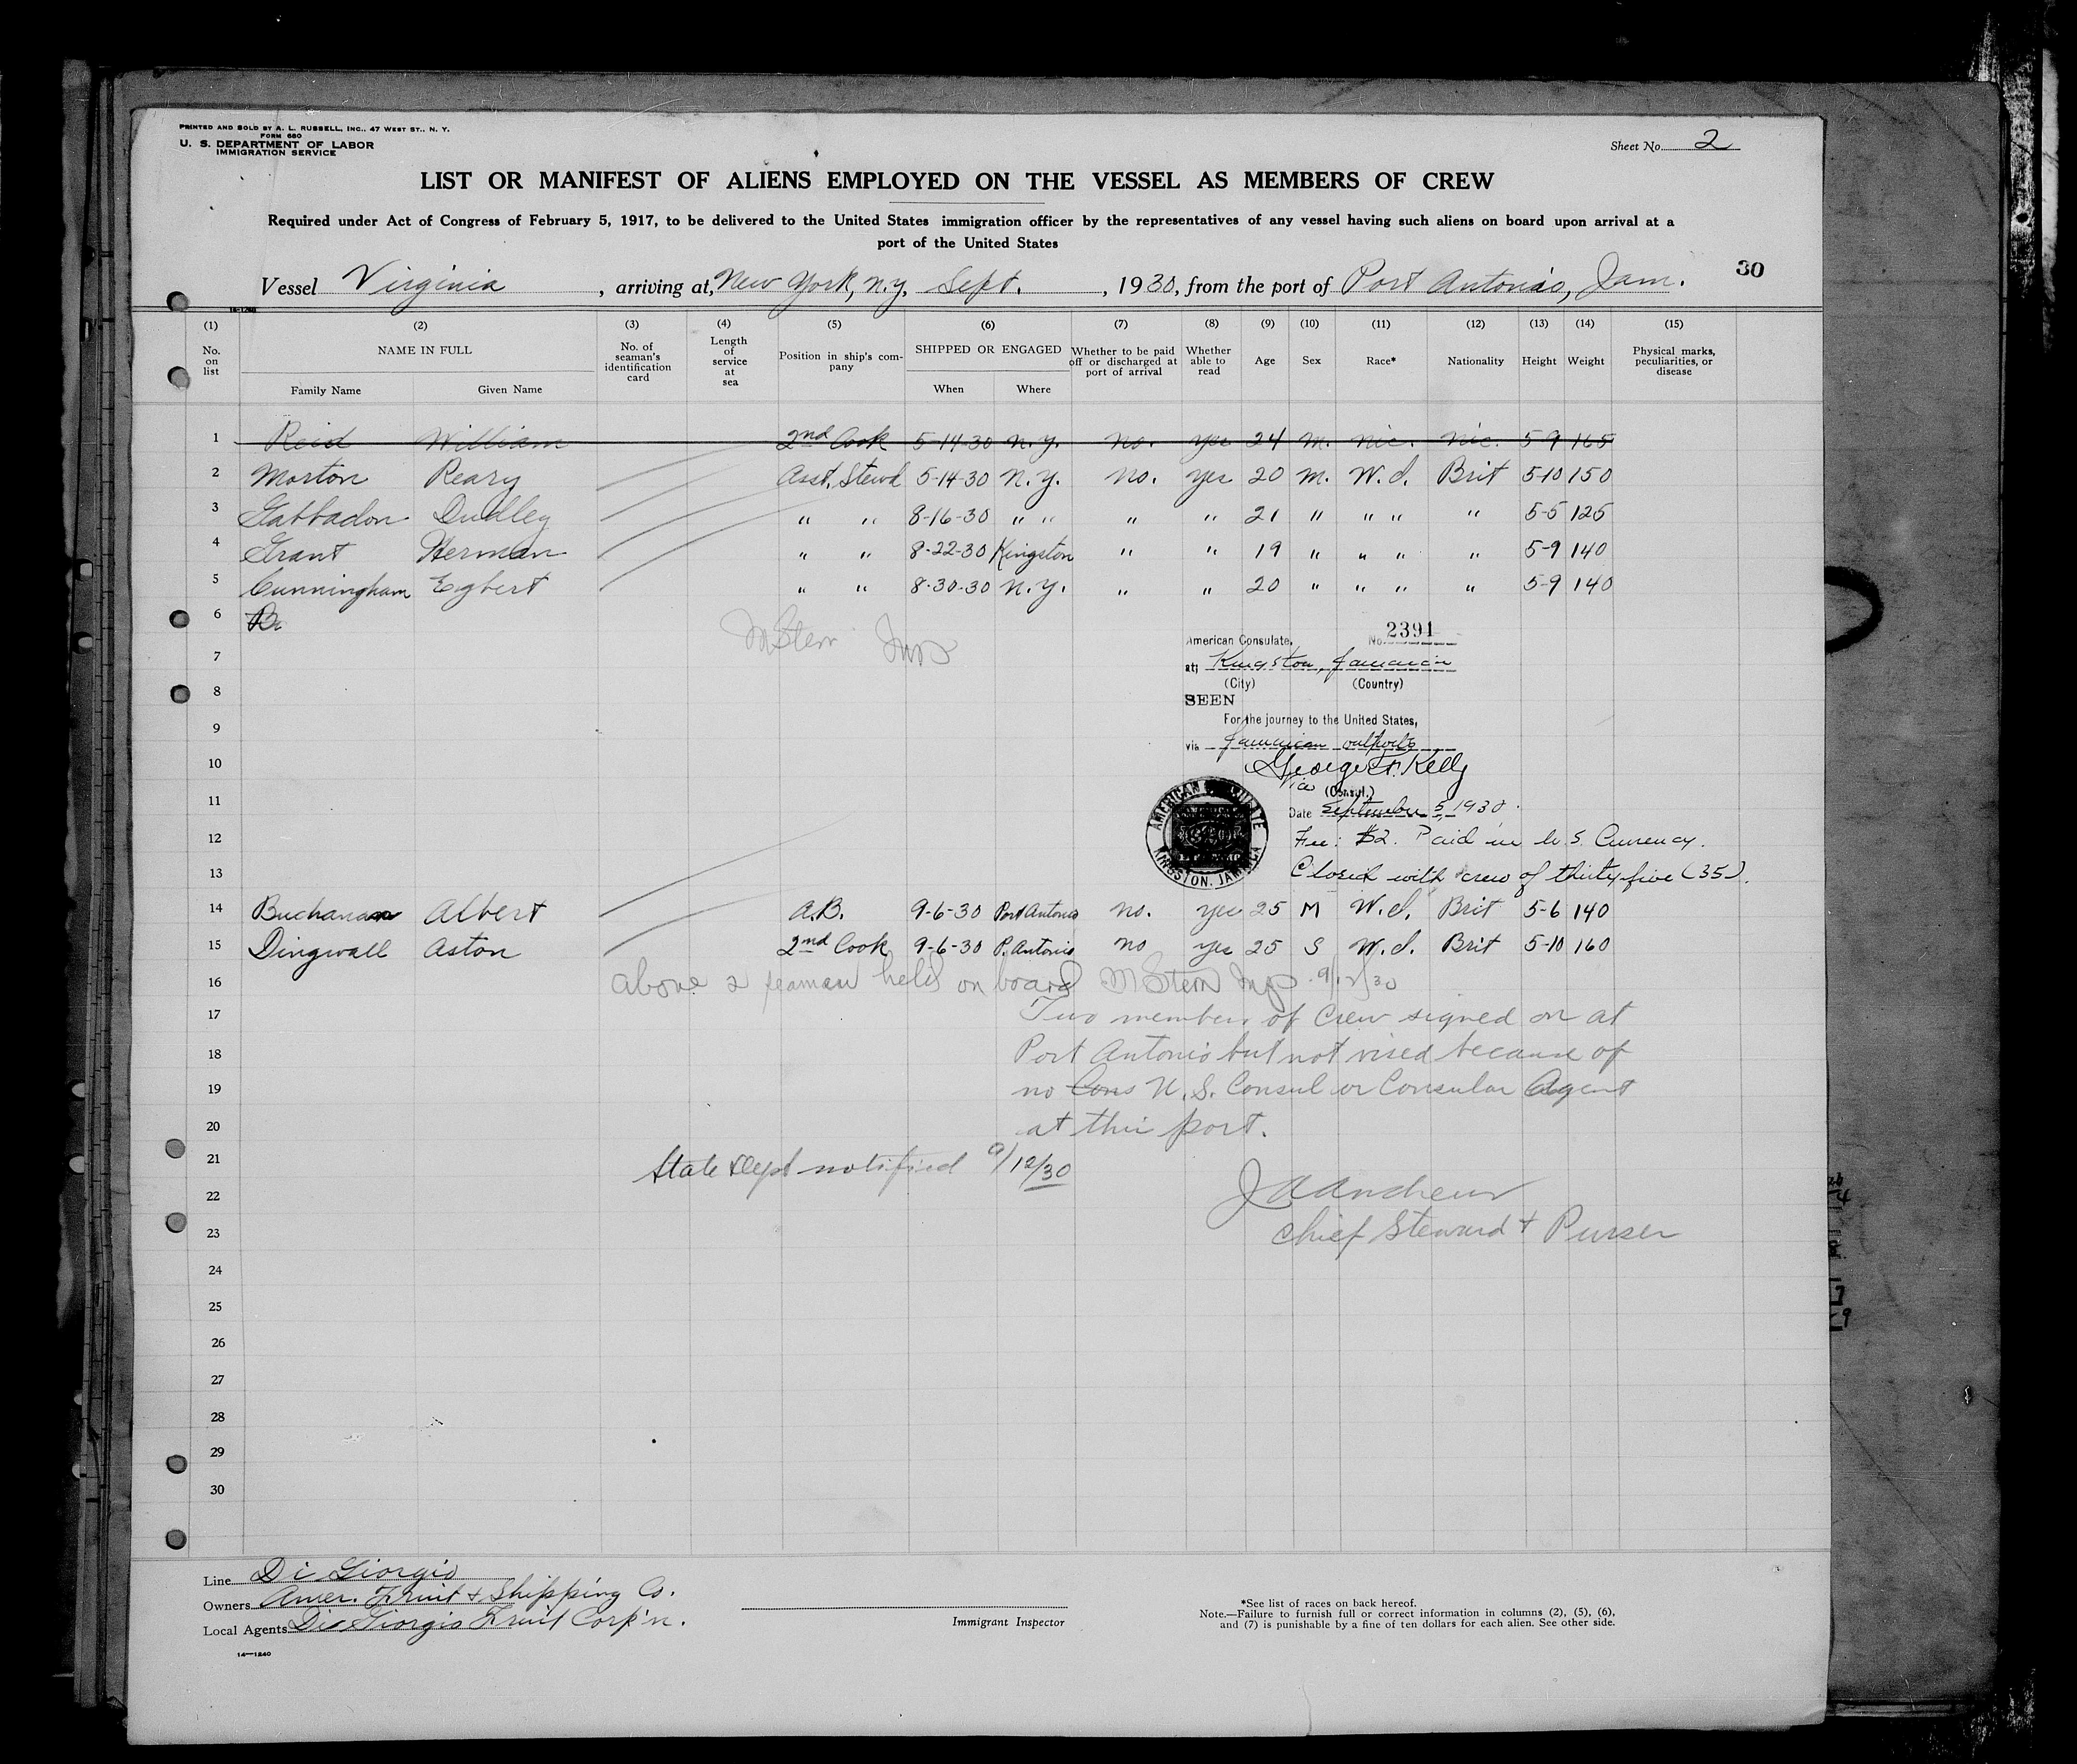 PRINTED AND SOLD BY A. L. RUSSELL, INC., 47 WEST ST., N. Y.
FORM 680
U. S. DEPARTMENT OF LABOR
IMMIGRATION SERVICE
Sheet No. 2
LIST OR MANIFEST OF ALIENS EMPLOYED ON THE VESSEL AS MEMBERS OF CREW
Required under Act of Congress of February 5, 1917, to be delivered to the United States immigration officer by the representatives of any vessel having such aliens on board upon arrival at a
port of the United States
30
Vessel Virginia, arriving at, New York, N.Y, Sept., 1930, from the port of Port Antonio, Jam.
14-1240
(1) (2) (3) (4) (5) (6) (7) (8) (9) (10) (11) (12) (13) (14) (15)
No. on list NAME IN FULL Family Name Given Name No. of seaman's identification card Length of service at sea Position in ship's company SHIPPED OR ENGAGED When Where Whether to be paid off or discharged at port of arrival Whether able to read Age Sex Race* Nationality Height Weight Physical marks, peculiarities, or disease
1 Reid William 2nd Cook 5-14-30 N.Y. no. yes 24 m. Nic. Nic. 5-9 165
2 Morton Peary Asst. Stewd 5-14-30 N.Y. No. yes 20 m. W.I. Brit 5-10 150
3 Gabbadon Dudley " " 8-16-30 " " " " 21 " " " " 5-5 125
4 Grant Herman " " 8-22-30 Kingston " " 19 " " " " 5-9 140
5 Cunningham Egbert " " 8-30-30 N.Y. " " 20 " " " " 5-9 140
6 B
M Stern Insp
American Consulate, No. 2391
7
at; Kingston, Jamaica
(City) (Country)
8
SEEN
For the journey to the United States,
9
via Jamaican outports
10
George F. Kelly
Vice (Consul.)
11
Date September 5, 1930.
AMERICAN CONSULATE
KINGSTON, JAMAICA
12
Fee: $2. Paid in U.S. Currency.
13
Closed with crew of thirty five (35).
14 Buchanan Albert A.B. 9-6-30 Port Antonio no. yes 25 M W.I. Brit 5-6 140
15 Dingwall Aston 2nd Cook 9-6-30 P. Antonio no yes 25 S W.I. Brit 5-10 160
16 above 2 seaman held on board M Stern Insp 9/12/30
17 Two members of Crew signed on at
18 Port Antonio but not vised because of
19 no Cons U.S. Consul or Consular Agent
20 at this port.
21 State Dept notified 9/12/30
22 J A Andrews
23 Chief Steward + Purser
24
25
26
27
28
29
30
Line Di Giorgio
Owners Amer. Fruit + Shipping Co.
Local Agents Di Giorgio Fruit Corp'n.
Immigrant Inspector
*See list of races on back hereof.
Note.—Failure to furnish full or correct information in columns (2), (5), (6),
and (7) is punishable by a fine of ten dollars for each alien. See other side.
14—1240